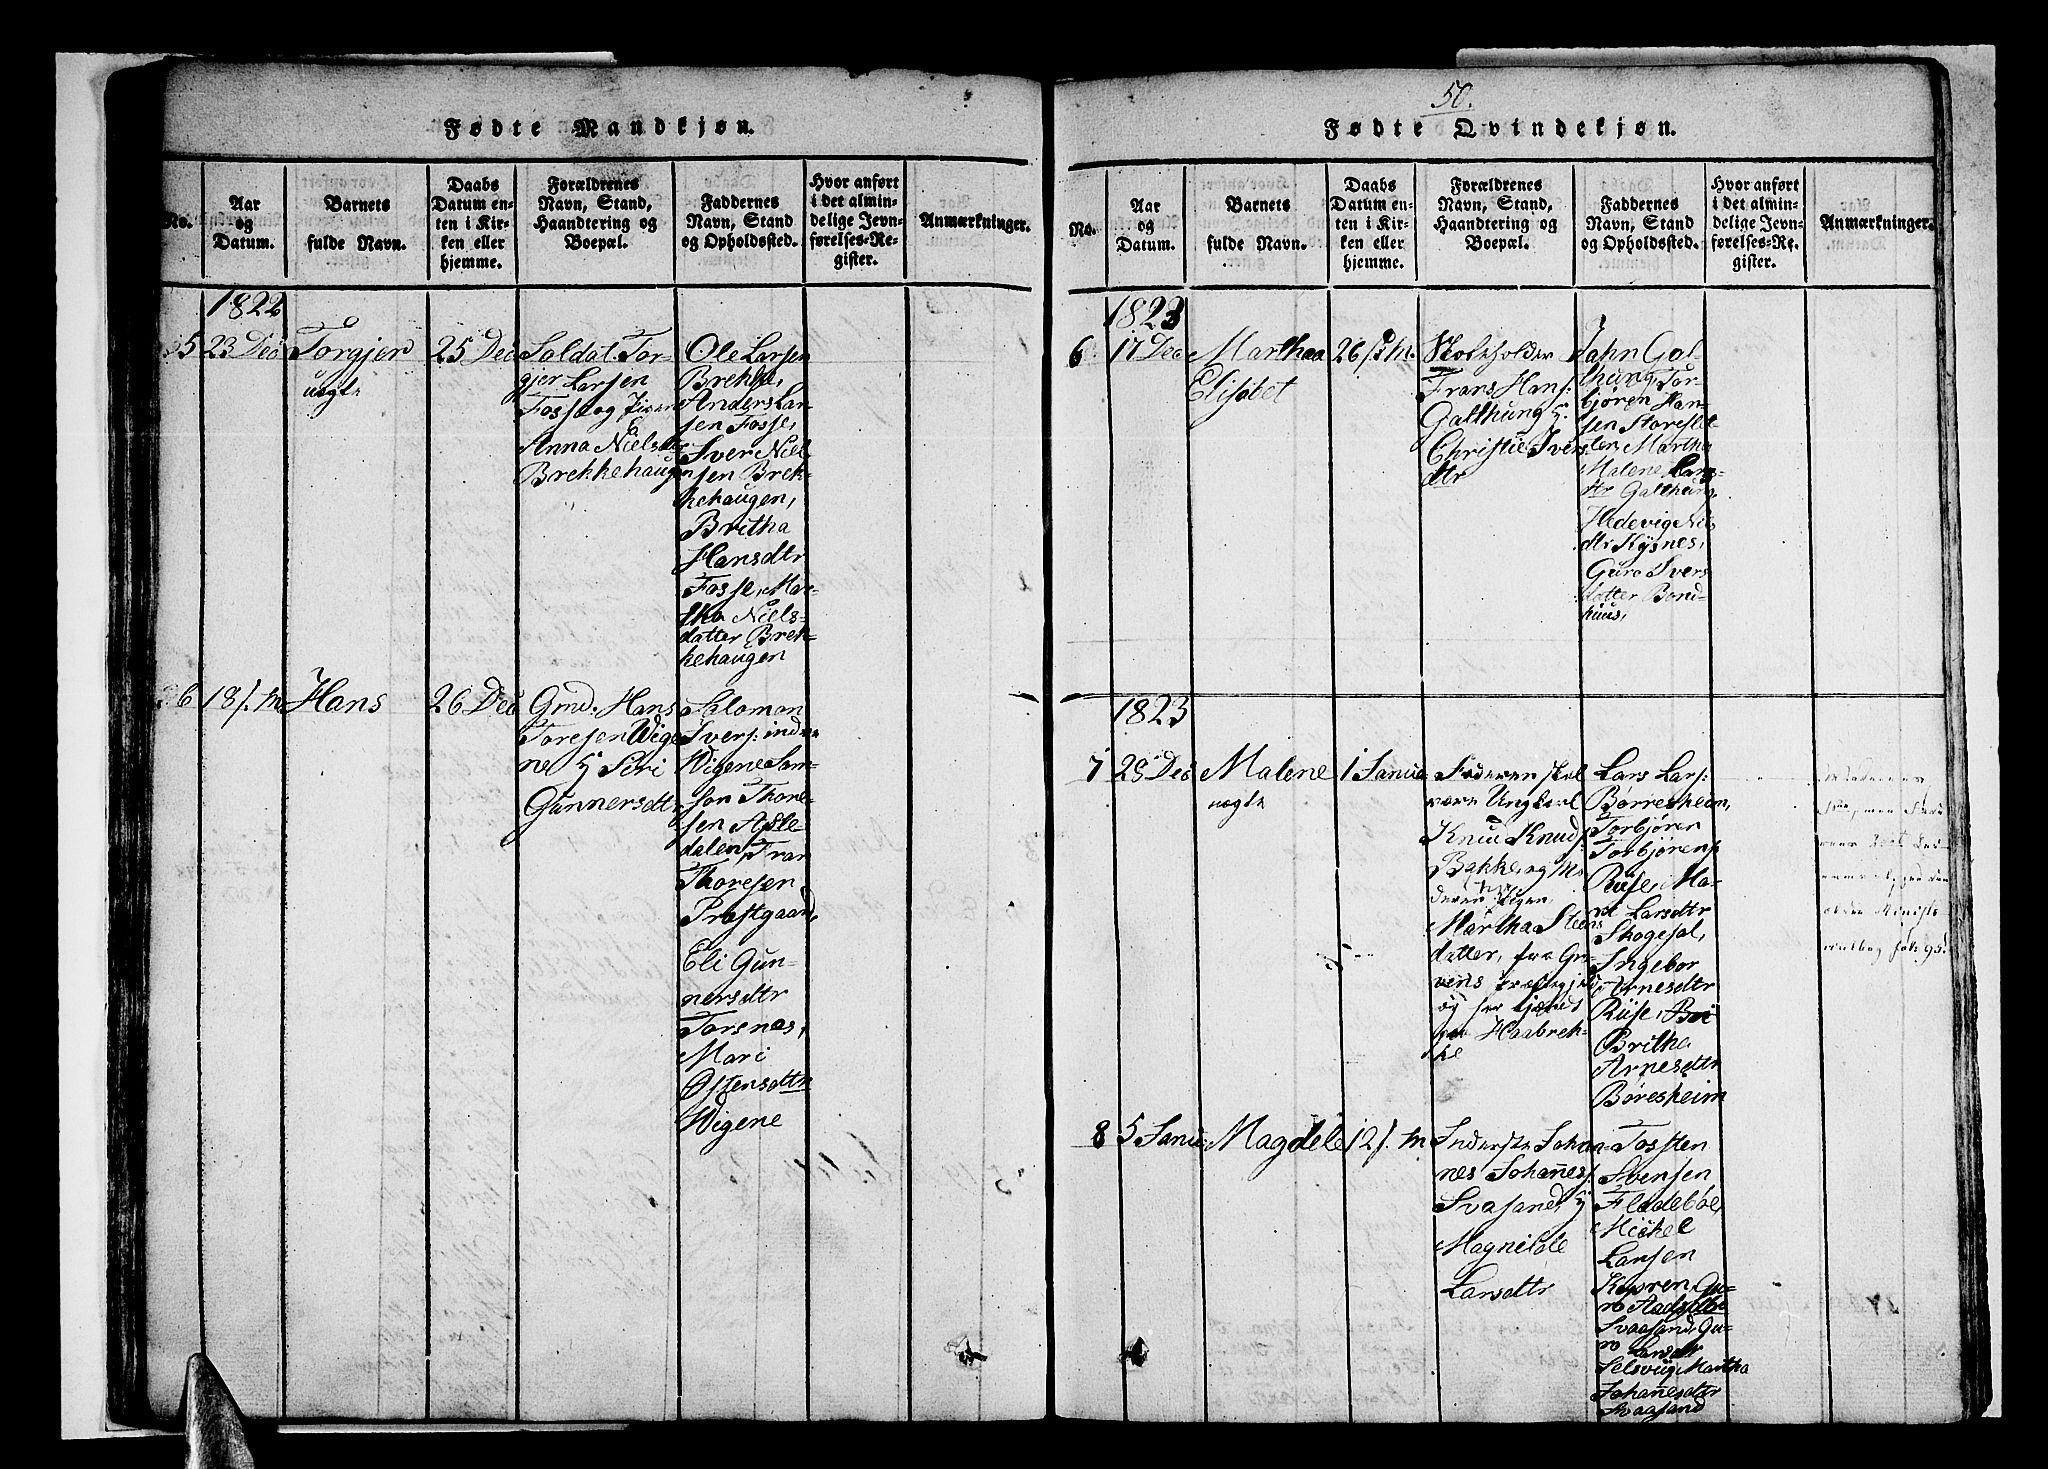 Fødte Mandkjøn.
No.
Aar
og
Datum.
Barnets
fulde Navn.
Daabs
Datum en-
ten i Kir-
ken eller
hjemme.
Forældrenes
Navn, Stand,
Haandtering og
Boepæl.
Faddernes
Navn, Stand
og Opholdssted.
Hvor anført
i det almin-
delige Jevn-
førelses-Re-
gister.
Anmærkninger.
1822
5
23 Dec
Torgjer
uegte
25 Dec
Soldat Tor-
gjer Larsen
Fosse og Pigen
Anna Nielsdtr
Brekkehaugen
Ole Larsen
Brekke,
Anders Lar-
sen Fosse,
Iver Niel-
sen Brek-
kehaugen,
Britha
Hansdtr
Fosse, Mar-
tha Niels-
datter Brek-
kehaugen
6
18 s. M
Hans
26 Dec
Gmd. Hans
Toresen Wige-
ne & Siri
Gunnersdtr
Salomon
Ivers: indre
Wigene Sam-
son Thore-
sen Axle-
dalen, Tran
Thoresen
Præstgaard,
Eli Gun-
nersdtr
Torsnes,
Mari
Østensdtr
Wigene
50.
Fødte Qvindekjøn.
No.
Aar
og
Datum.
Barnets
fulde Navn.
Daabs
Datum en-
ten i Kir-
ken eller
hjemme.
Forældrenes
Navn, Stand,
Haandtering og
Boepæl.
Faddernes
Navn, Stand
og Opholdssted.
Hvor anført
i det almin-
delige Jevn-
førelses-Re-
gister.
Anmærkninger.
1822
6
17 Dec
Martha
Elisabet
26 s. M.
Skoleholder
Frans Hans:
Galthung &
Christie Ivers
dtr
Jahn Gal-
thung, Tor-
bjøren Han-
sen Storeslet
ten, Martha
Malene Lars-
dtr Galthung,
Hedevig Nils
dtr Kysnes,
Guro Ivers
datter Bond-
huus,
1823
7
29 Dec
Malene
uegte
1 Janua
Faderen skal
være Ungkarl
Knud Knuds:
Bakke, og Mo
deren Pigen
Martha Steens
datter, fra Gra
vens præstegjeld
og her tjenende
paa Haabrek-
ke
Lars Lars:
Børresheim,
Torbjøren
Torbjørens:
Riise, Ma-
ri Larsdtr
Skogesal,
Ingebor
Arnesdtr
Riise,
Britha
Arnesdtr
Børesheim
fol: 95.
8
5 Janu:
Magdele
12 s. M
Inderste Johan-
nes Johannes:
Svasand &
Magnilde
Larsdtr
Tosten
Svensen
Fladebøe,
Mickel
Larsen
Kapren, Gu-
ro
Svaasand, Gu-
ro Larsdtr
Selsviig, Martha
Johannesdtr
Svaasand